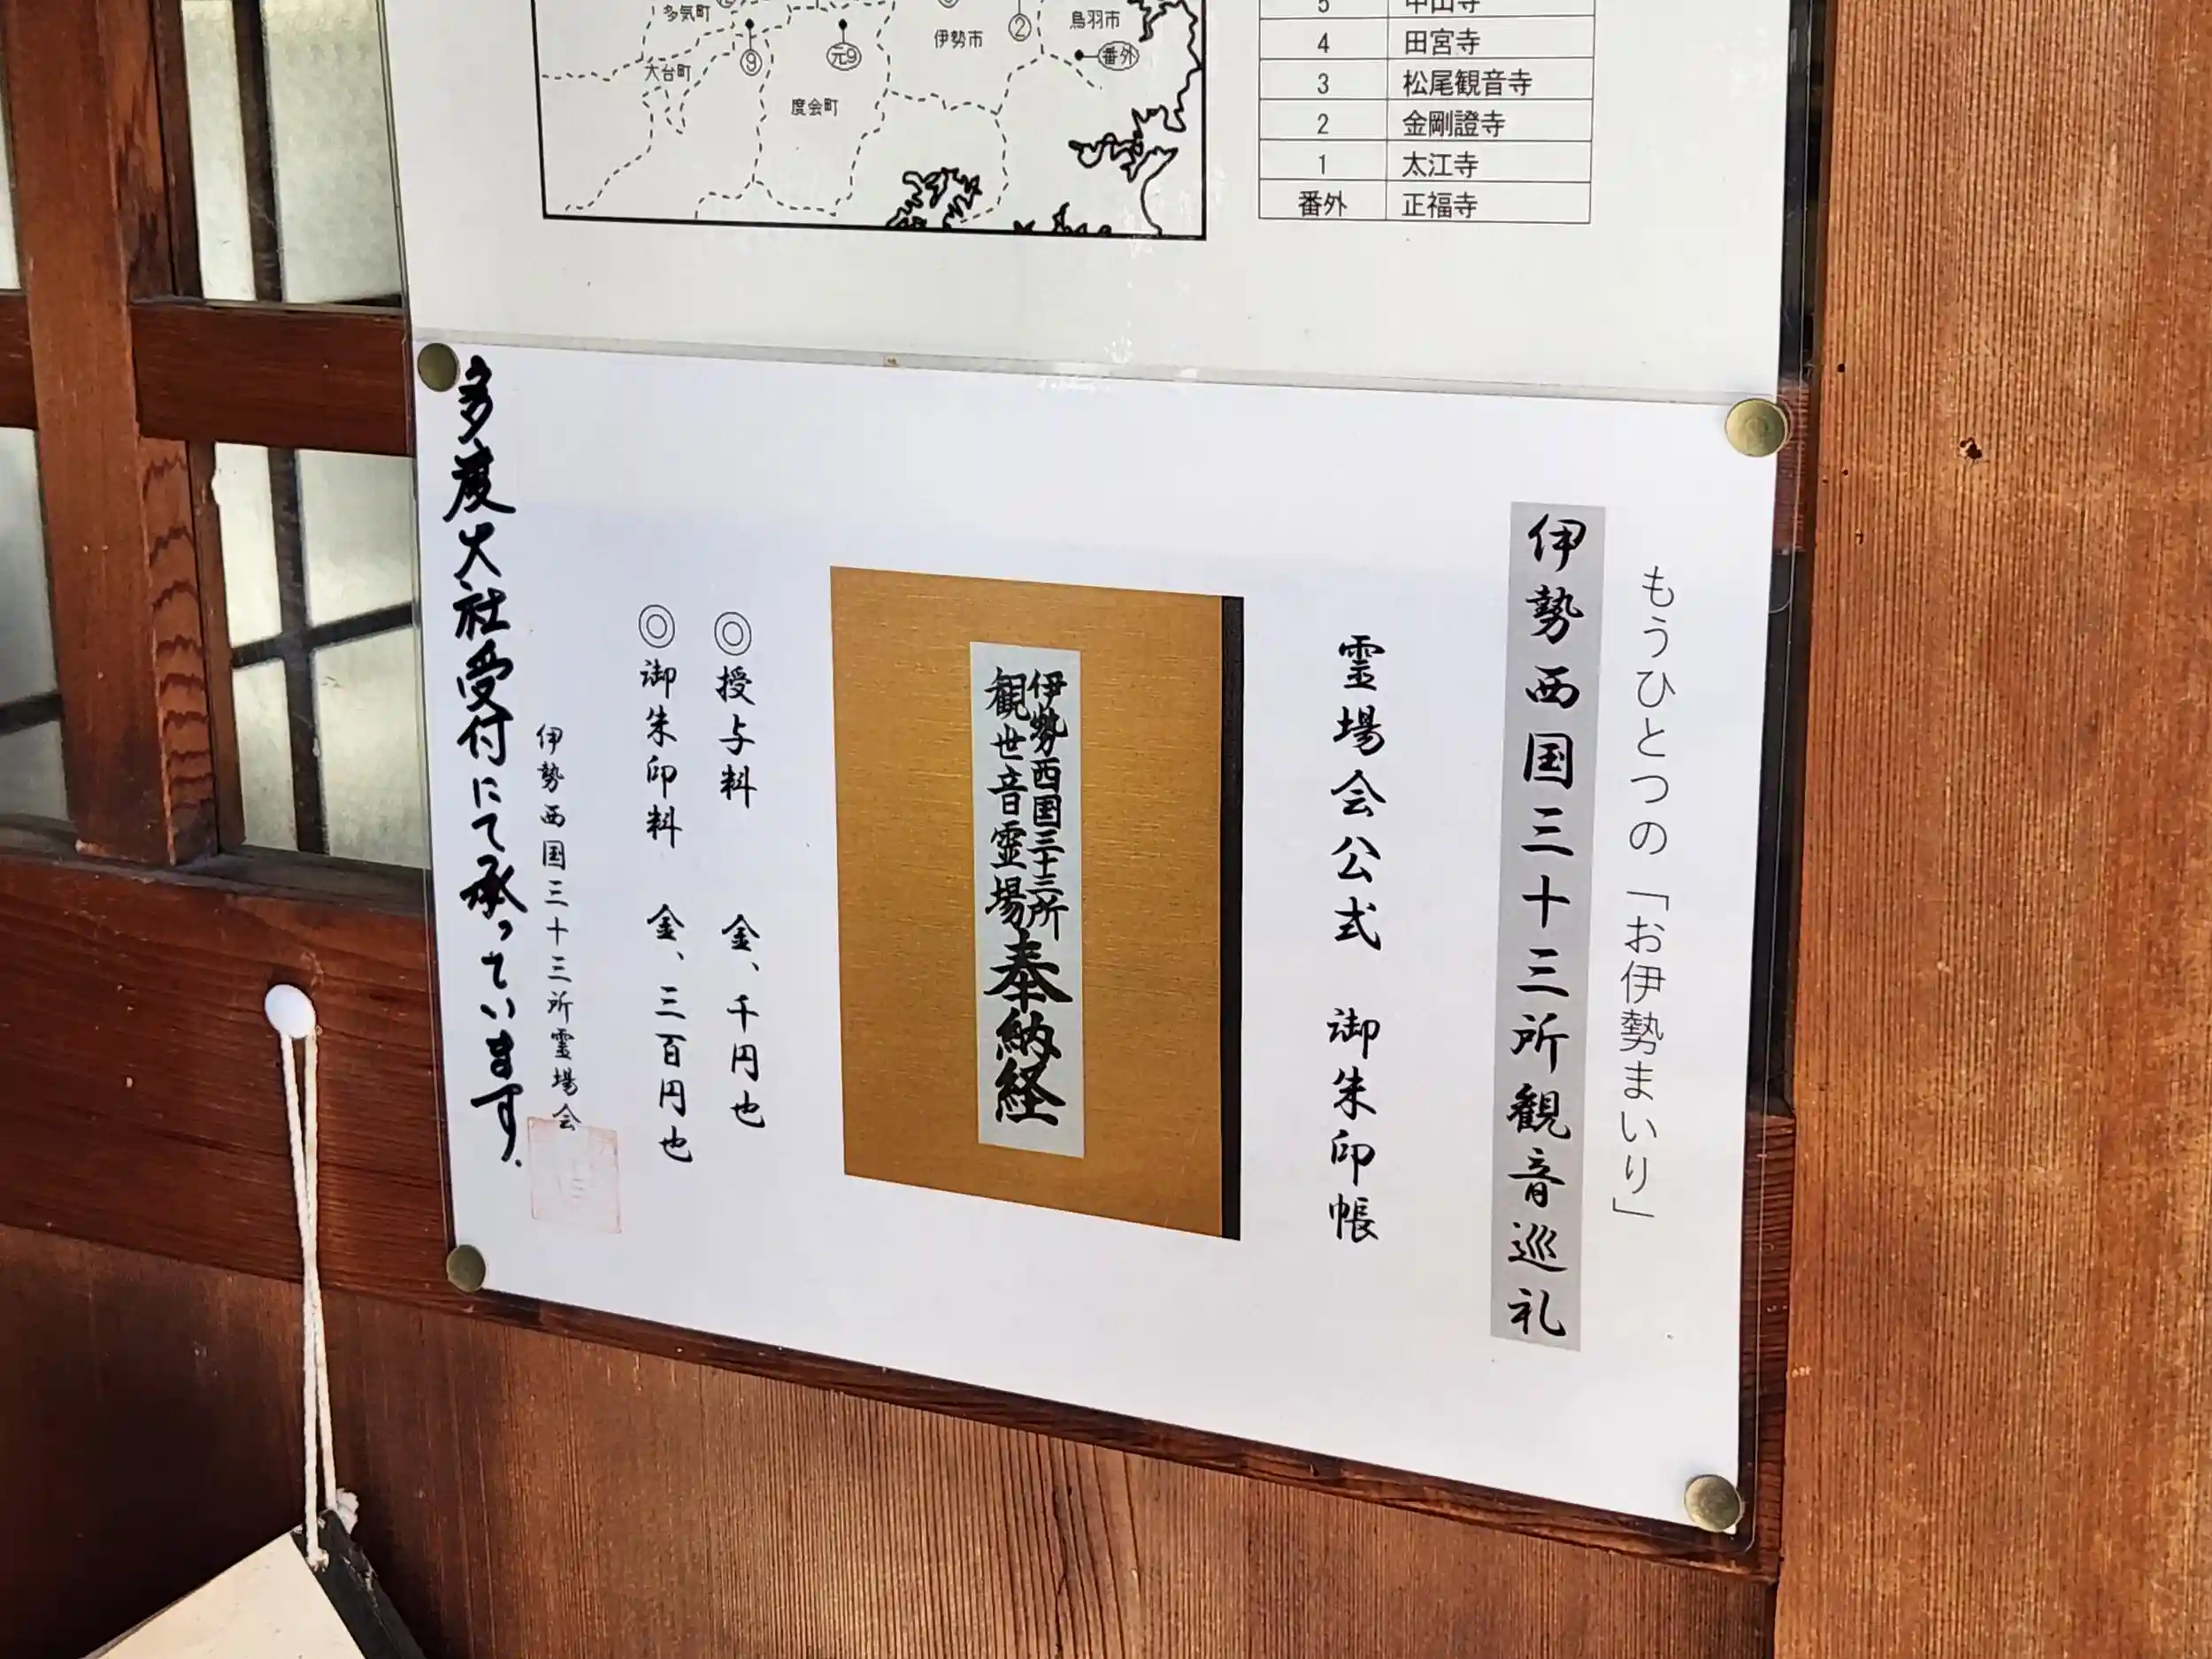 多気町
鳥羽市
伊勢市
②
番外
⑨
元9
大台町
度会町
4 田宮寺
3 松尾観音寺
2 金剛證寺
1 太江寺
番外 正福寺
もうひとつの「お伊勢まいり」
伊勢西国三十三所観音巡礼
霊場会公式 御朱印帳
伊勢西国三十三所
観世音霊場
奉納経
◎授与料 金、千円也
◎御朱印料 金、三百円也
伊勢西国三十三所霊場会
多度大社受付にて承っています.